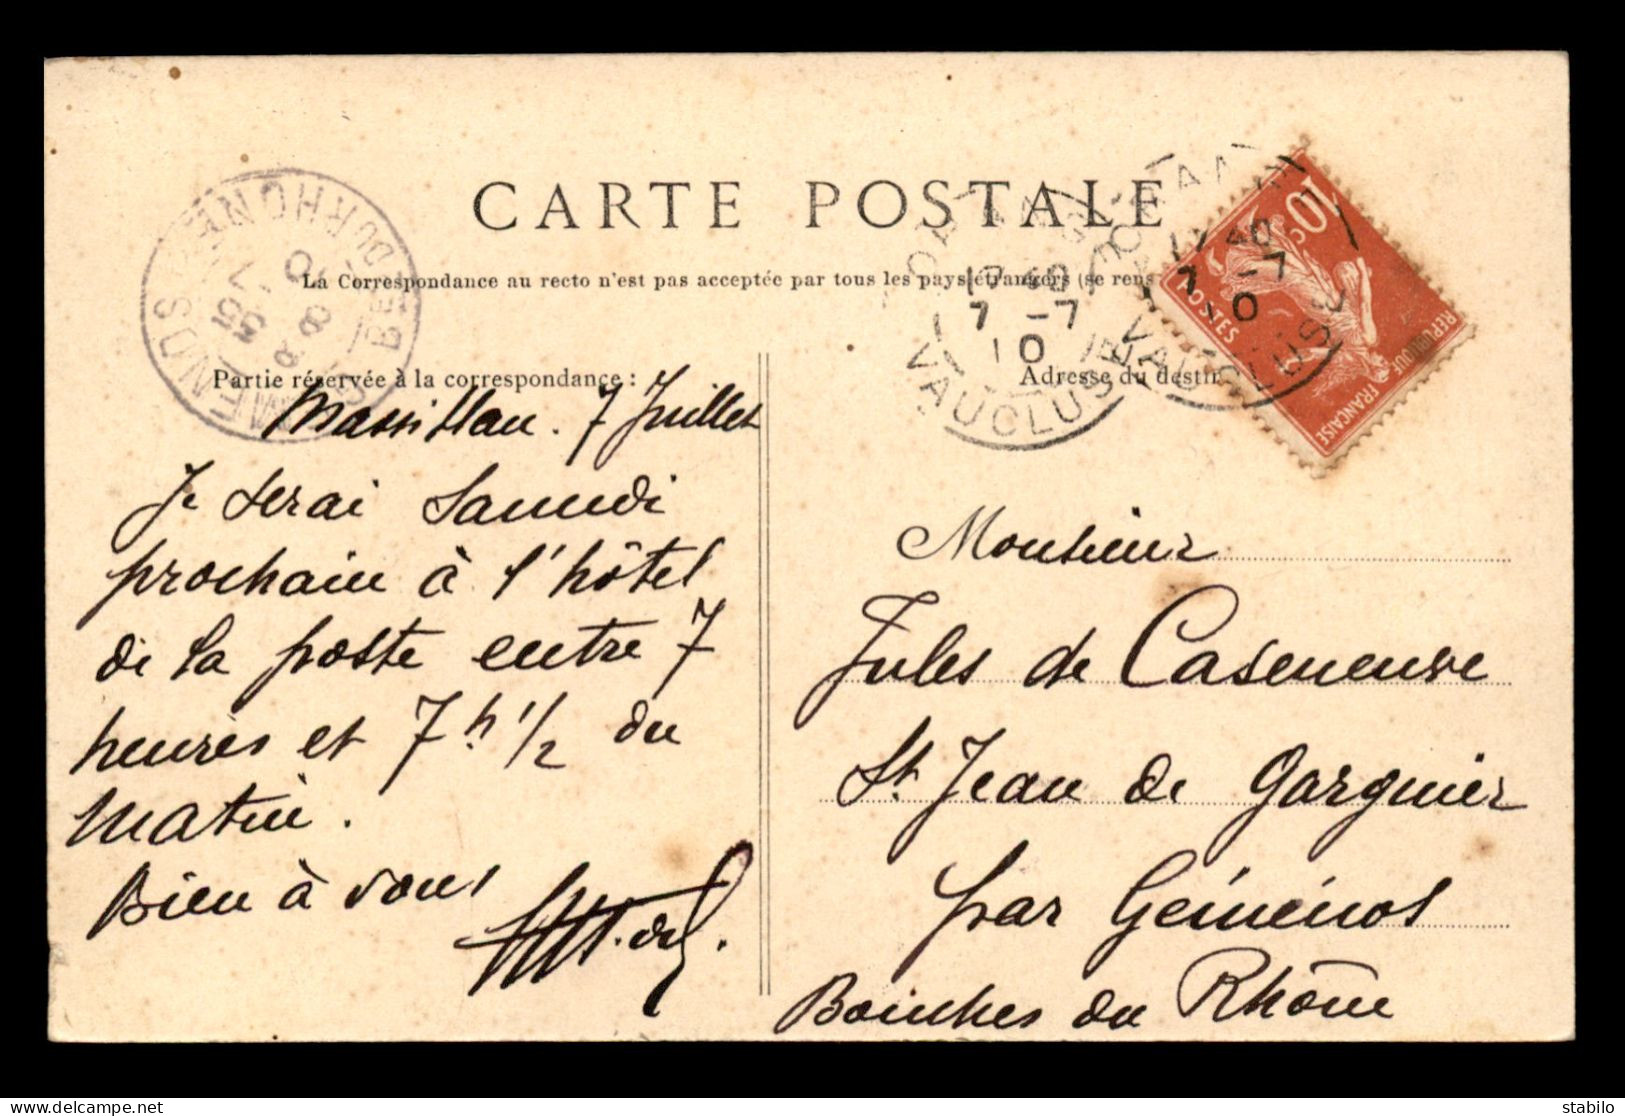 CARTE POSTALE
La Correspondance au recto n'est pas acceptée par tous les pays étrangers (se rens
Partie réservée à la correspondance :
Massillan. 7 Juillet
Je serai Samedi
prochain à l'hôtel
de la poste entre 7
heures et 7 h 1/2 du
matin.
Bien à vous
Adresse du destin
Monsieur
Jules de Caseneuve
St. Jean de Garguier
par Gémenos
Bouches du Rhône
17 40
7 -7
10
VAUCLUSE
17 40
7 -7
10
VAUCLUSE
GEMENOS
BCHES DU RHONE
8 35
8 7
10
10c
POSTES
REPUBLIQUE FRANÇAISE
stabilo